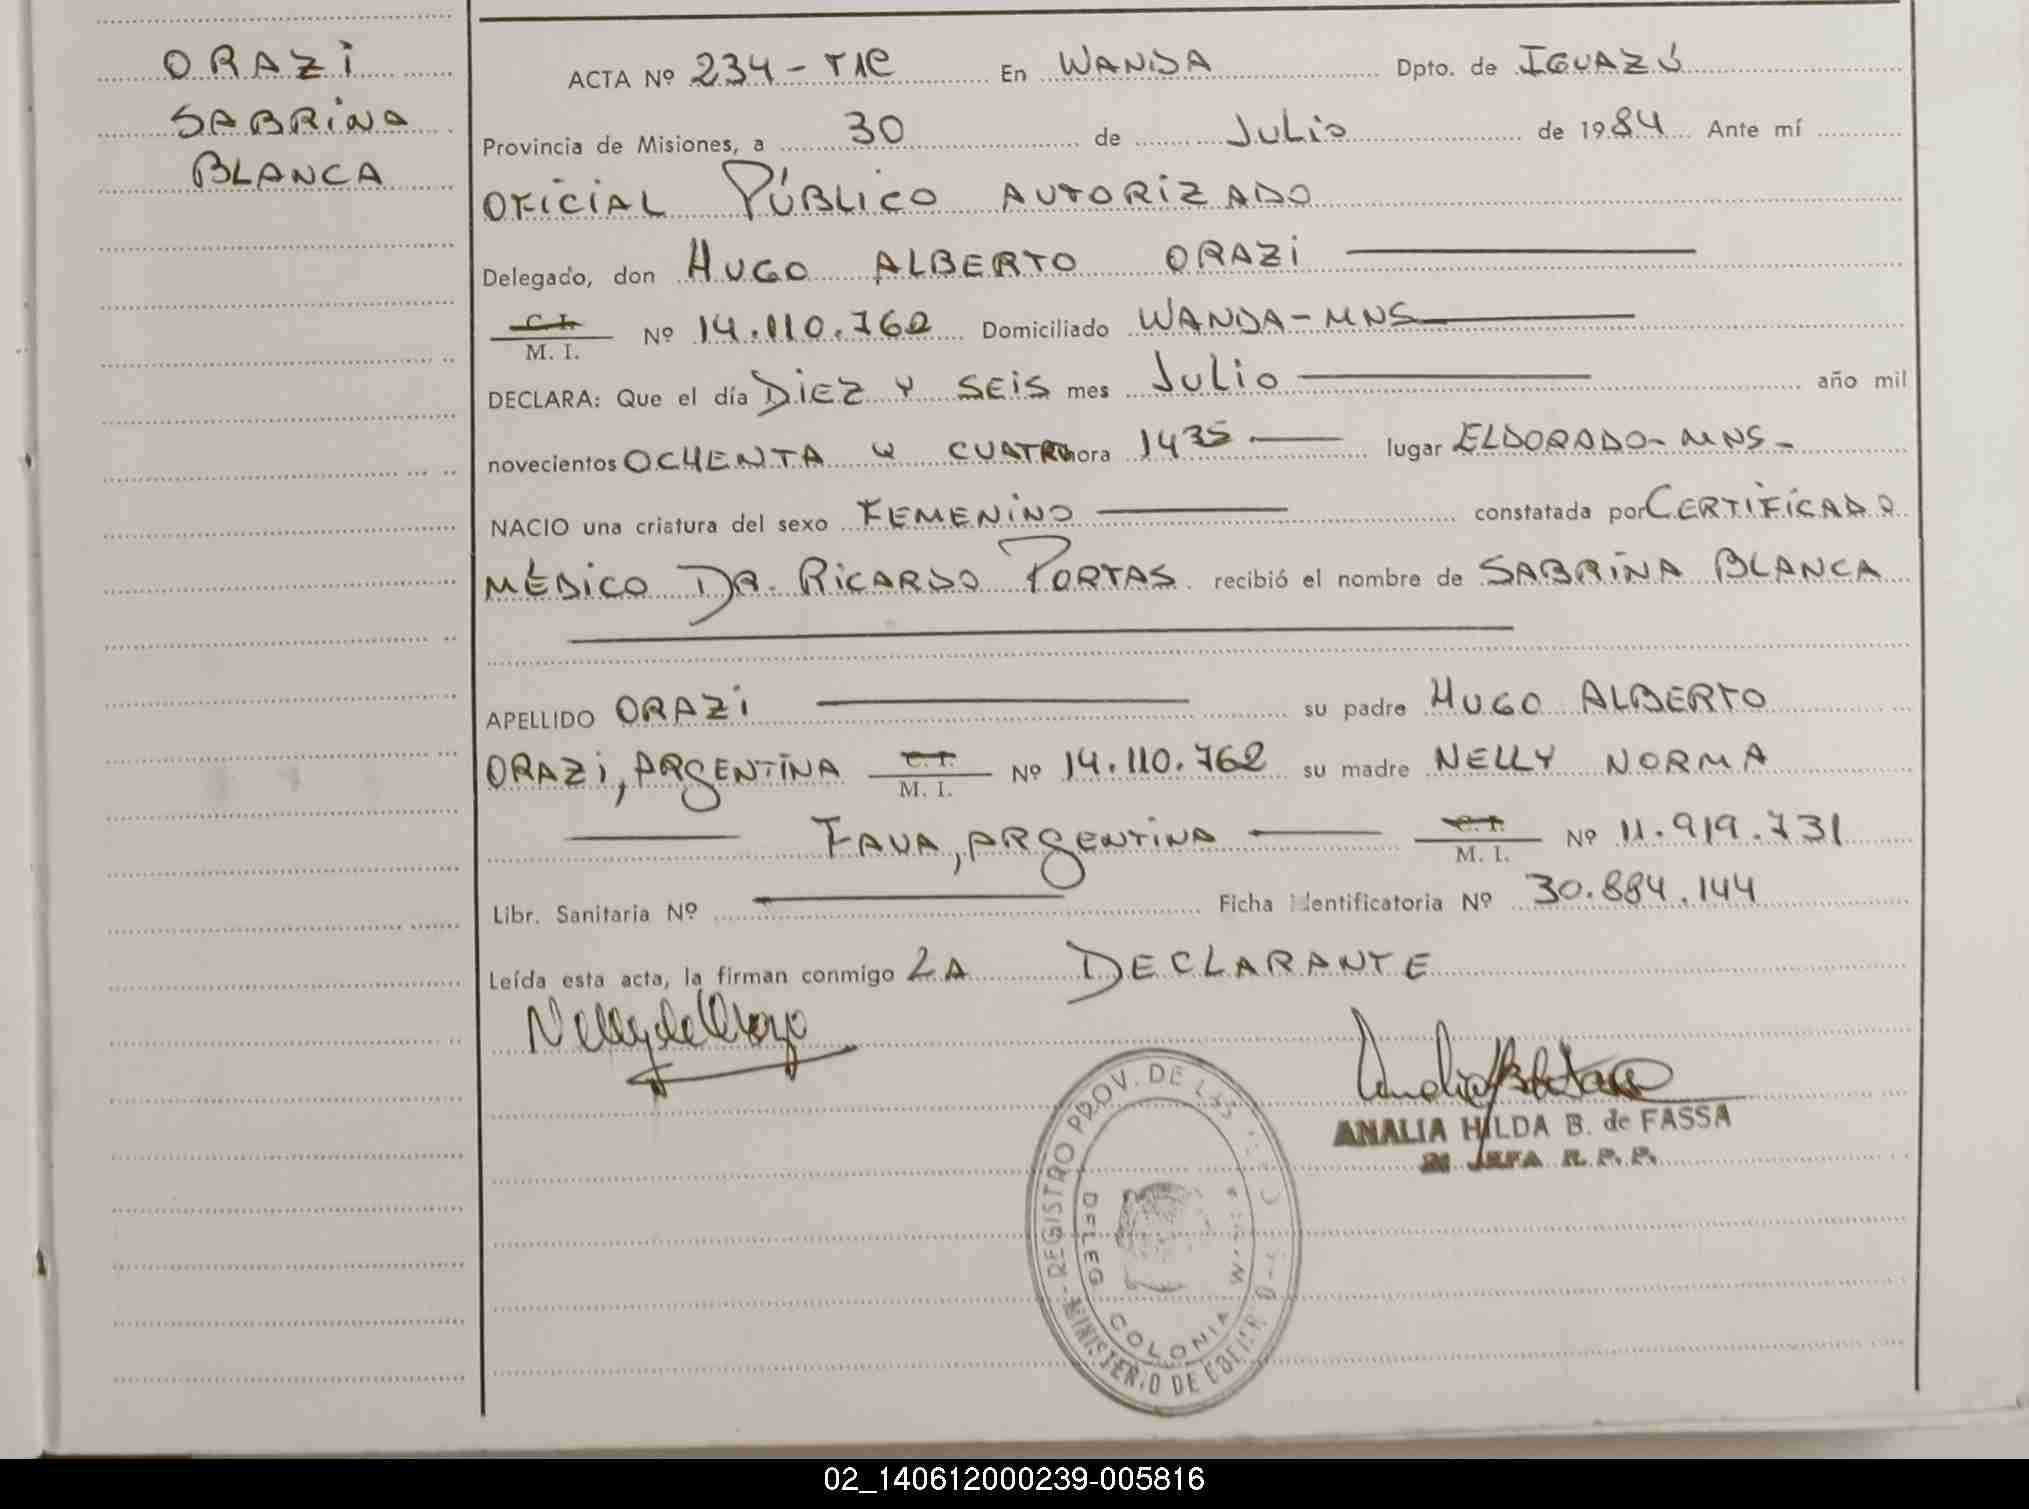 ORAZI
SABRINA
BLANCA
ACTA Nº 234 - T1C En WANDA Dpto. de IGUAZÚ
Provincia de Misiones, a 30 de JULIO de 1984 Ante mí
OFICIAL PÚBLICO AUTORIZADO
Delegado, don HUGO ALBERTO ORAZI
C. I.
M. I. Nº 14.110.762 Domiciliado WANDA-MNS
DECLARA: Que el día DIEZ Y SEIS mes JULIO año mil
novecientos OCHENTA Y CUATRO hora 1435 lugar ELDORADO-MNS-
NACIO una criatura del sexo FEMENINO constatada por CERTIFICADO
MÉDICO DR. RICARDO PORTAS. recibió el nombre de SABRINA BLANCA
APELLIDO ORAZI su padre HUGO ALBERTO
ORAZI, ARGENTINA C. I. M. I. Nº 14.110.762 su madre NELLY NORMA
FAVA, ARGENTINA C. I. M. I. Nº 11.919.731
Libr. Sanitaria Nº Ficha Identificatoria Nº 30.884.144
Leída esta acta, la firman conmigo LA DECLARANTE
ANALIA HILDA B. de FASSA
JEFA R. P. P.
REGISTRO PROV. DE LAS
MINISTERIO DE
DELEG. COLONIA
02_140612000239-005816